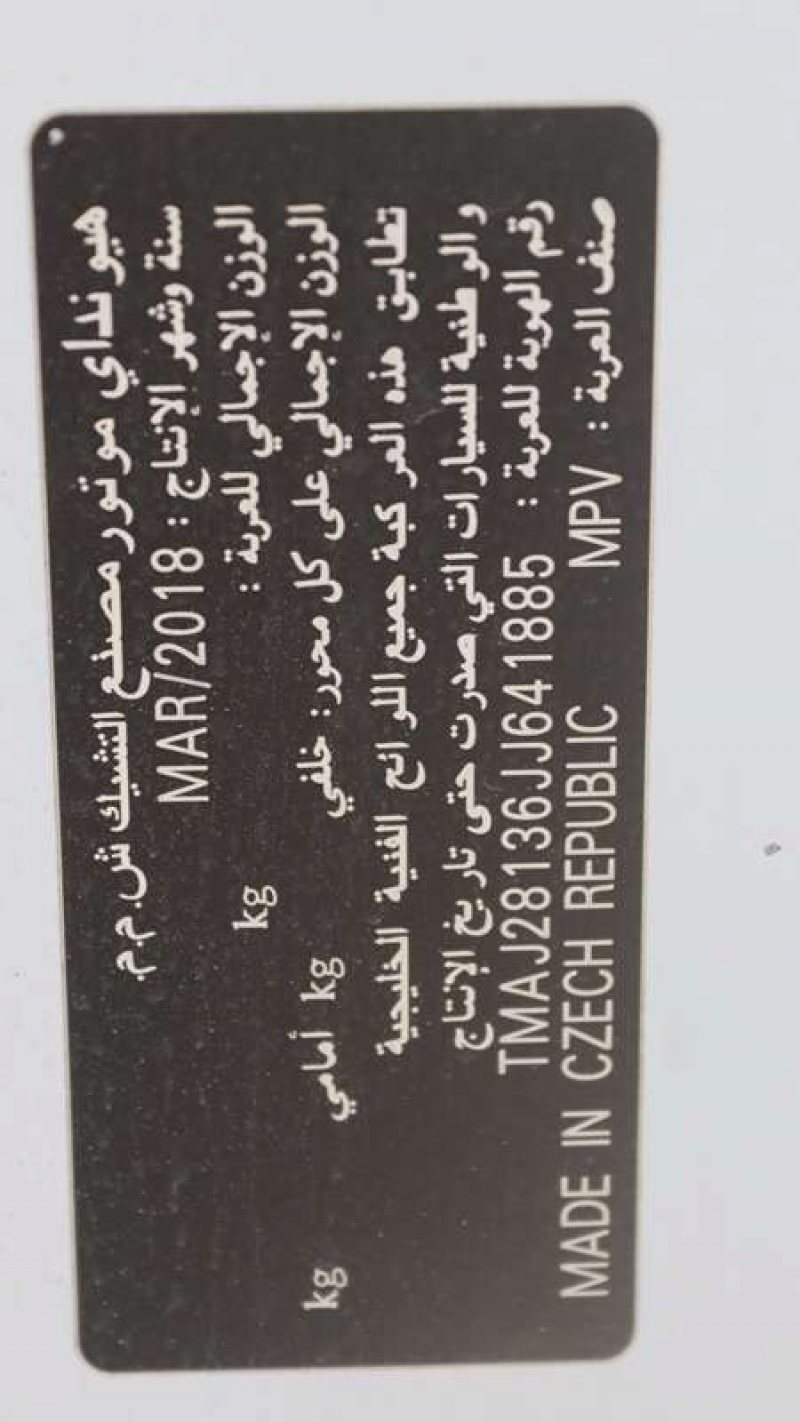 هيونداي موتور مصنع التشيك ش.م.م.
سنة وشهر الإنتاج : MAR/2018
الوزن الإجمالي للعربة : kg
الوزن الإجمالي على كل محور: خلفي kg أمامي kg
تطابق هذه العركبة جميع اللوائح الفنية الخليجية
والوطنية للسيارات التي صدرت حتى تاريخ الإنتاج
رقم الهوية للعربة : TMAJ28136JJ641885
صنف العربة : MPV MADE IN CZECH REPUBLIC